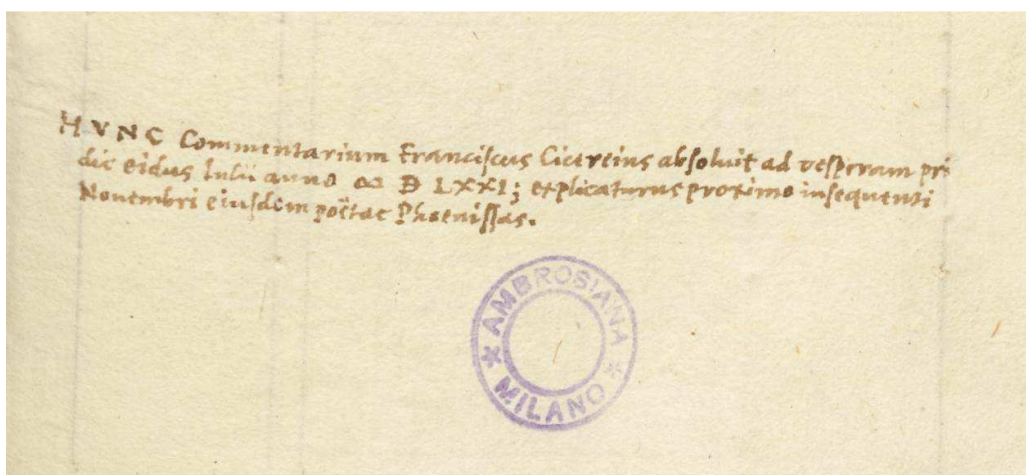 HVNC Commentarium Franciscus Cicereius absoluit ad vesperam pri
die eidus Iulii anno ∞ D LXXI; explicaturus proximo insequenti
Nouembri eiusdem poëtae Phoenissas.
* AMBROSIANA * MILANO